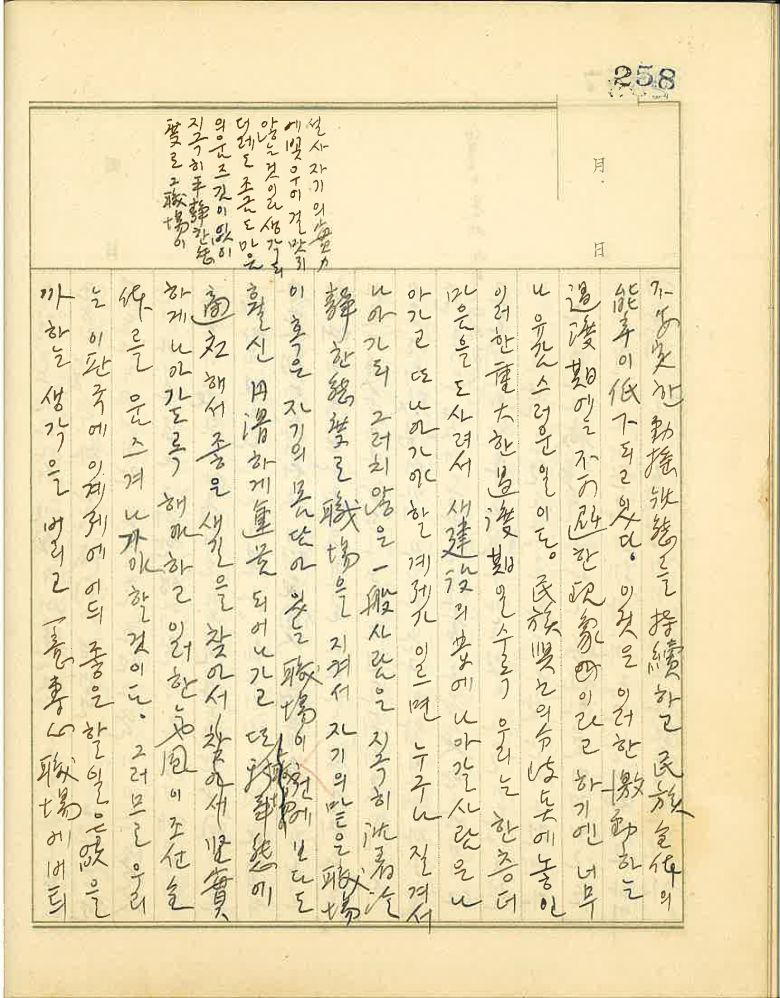 258
月
日
설사 자기의 實力
에 맞우어 걸맞지
않는 것이라 생각되
더레도 조금도 마음
의 움즈김이 없이
지극히 平靜한 態
度로 그 職場이
不安定한 動搖狀態를 持續하고 民族全体의
能率이 低下되고 있다. 이것은 이러한 激動하는
過渡期에는 不可避한 現象이라고 하기엔 너무
나 유감스러운 일이다. 民族興亡의 分岐点에 놓인
이러한 重大한 過渡期일수록 우리는 한층 더
마음을 도사려서 새 建設의 부에 나아갈 사람은 나
아가고 또 나아가야 할 계제에 이르면 누구나 질겨서
나아가되 그러치 않은 一般사람은 지극히 沈着冷
靜한 態度로 職場을 지켜서 자기의 맡은 職場
이 혹은 자기의 몸 담아 있는 職場이 전에 보다도
훨신 円滑하게 運營되어나가고 또 新事態에
適応해서 좋은 새길을 찾아서 찾아서 堅實
하게 나아가도록 해야하고 이러한 氣風이 조선 全
体를 움즈겨 나가야 할 것이다. 그러므로 우리
는 이 판국에 이 계제에 어듸 좋은 할 일은 없을
까 하는 생각을 버리고 一意專心 職場에 버틔